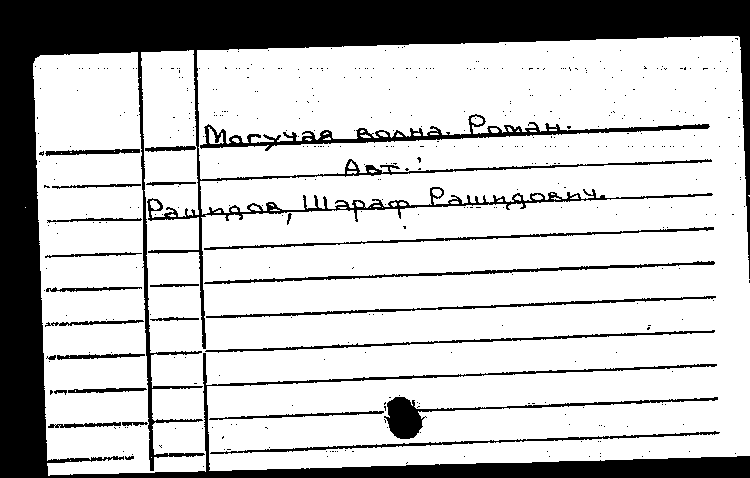 Могучая волна. Роман.
Авт.:
Рашидов, Шараф Рашидович.